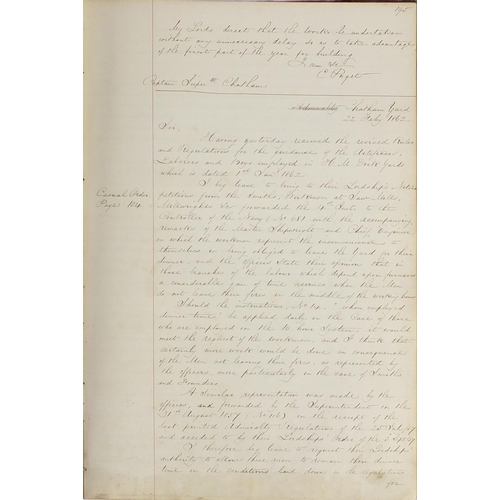 195
My Lords direct that the Works be undertaken
without any unnecessary delay so as to take advantage
of the finest part of the year for building
I am &c
C Paget
Captain Superd Chatham
Admiralty Chatham Yard
22 Feby 1862
Sir,
Having yesterday received the revised Rules
and Regulations for the guidance of the Artificers,
Laborers and Boys employed in H. M. Dock Yards
which is dated 1st Jany 1862
I beg leave to bring to their Lordships Notice
Casual Order
Page 184
petitions from the Smiths, Workmen at Saw Mills,
Millwrights &c forwarded the to the
Controller of the Navy (No 681 with the accompanying
remarks of the Master Shipwright and Chief Engineer
in which the workmen represent the inconvenience to
themselves in being obliged to leave the Yard for their
dinner, and the Officers State their opinion that in
those branches of the labour which depend upon furnaces
a considerable gain of time accrues when the Men
do not leave their fires in the middle of the working hours
Should the instructions, No 42 "when employed
dinner times" be applied daily in the case of those
who are employed on the 10 hour System, it would
meet the request of the Workmen, and I think that
certainly more work would be done in consequence
of the Men not leaving their fires, as represented by
the Officers, more particularly in the case of Smiths
and Founders
A Similar representation was made by the
Officers, and forwarded by the Superintendent on the
31st August 1857 (No 463 on the receipt of the
last printed Admiralty Regulations of the 25 July 57
and acceded to by their Lordships Order of the 3 Sept 57
I therefore beg leave to request their Lordships
authority to allow these men to remain their dinner
time on the conditions laid down in the regulations